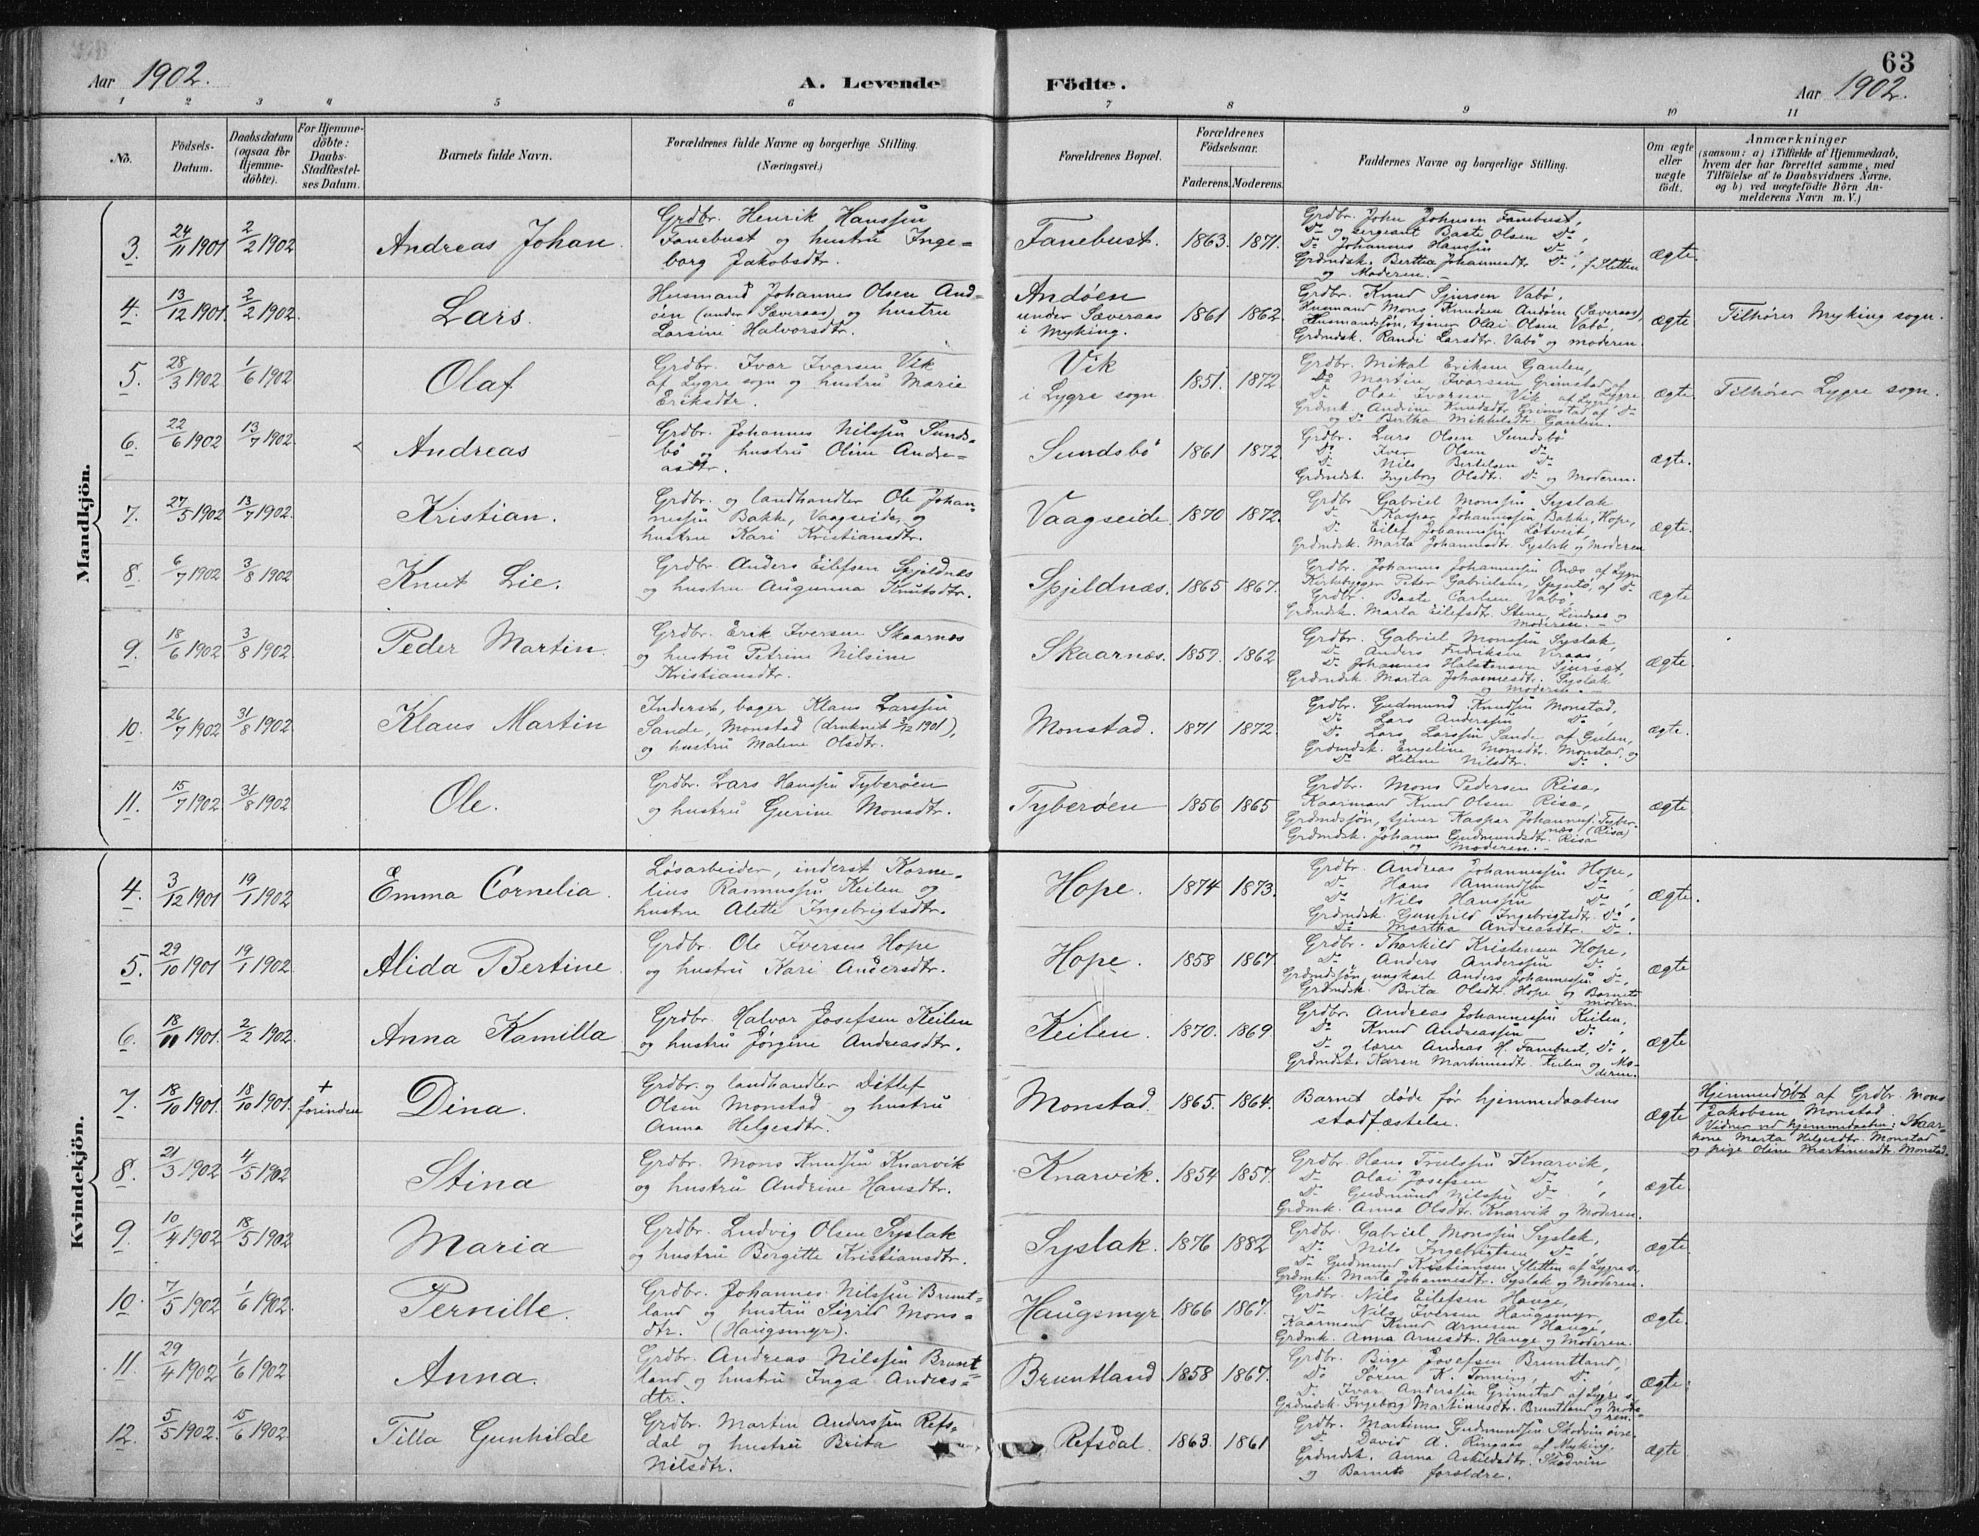 63
Aar 1902.
A. Levende Födte.
Aar 1902.
1 2 3 4 5 6 7 8 9 10 11
No.
Födsels-Datum.
Daabsdatum (ogsaa for Hjemmedöbte).
For Hjemmedöbte: Daabs-Stadfæstelses Datum.
Barnets fulde Navn.
Forældrenes fulde Navne og borgerlige Stilling. (Næringsvei.)
Forældrenes Bopæl.
Forældrenes Födselsaar.
Faderens. Moderens.
Faddernes Navne og borgerlige Stilling.
Om ægte eller uægte födt.
Anmærkninger
(saasom: a) i Tilfælde af Hjemmedaab,
hvem der har forrettet samme, med
Tilföielse af to Daabsvidners Navne,
og b) ved uægtefödte Börn An-
melderens Navn m. V.)
Mandkjön.
3. 24/11 1901 2/2 1902 Andreas Johan.
Grdbr. Henrik Hanssøn
Fanebust og hustru Inge-
borg Jakobsdtr.
Fanebust. 1863. 1871.
Grdbr. John Johnsen Fanebust,
Do og sergeant Baste Olsen Do,
Do Johannes Hanssøn Do,
Grdmdsk. Bertha Johannesdtr Do, f. Sletten
og Moderen.
ægte.
4. 13/12 1901. 2/2 1902. Lars.
Husmand Johannes Olsen And-
öen (under Sæveraas) og hustru
Larsine Halvorsdtr.
Andøen
under Sæveraas
i Myking.
1861 1862
Grdbr. Knud Sjursen Vabø,
Husmand Mons Knudsen Andøen (Sæveraas),
Husmandssøn, tjener Olai Olsen Vabø,
Grdmdsk. Randi Larsdtr. Vabø og moderen.
ægte. Tilhører Myking sogn.
5. 28/3 1902 1/6 1902 Olaf
Grdbr. Ivar Ivarsen Vik
af Lygre sogn og hustru Marie
Eriksdtr.
Vik
i Lygre sogn.
1851. 1872
Grdbr. Mikal Eriksen Gaulen,
Do Martin Ivarsen Grimstad af Lygre
Do Olai Ivarsen Vik af Lygre
Grdmk. Andrine Knudsdtr Grimstad af Do
og Do Bertha Mikkelsdtr Gaulen.
ægte. Tilhører Lygre sogn.
6. 22/6 1902 13/7 1902 Andreas
Grdbr. Johannes Nilssøn Sunds-
bö og hustru Oline Andre-
asdtr.
Sundsbö 1861 1872
Grdbr. Lars Olsen Sundsbö
Do Iver Olsen Do
Do Nils Bertelsen Do
Grdmdsk. Ingeborg Olsdtr. Do og Moderen.
ægte.
7. 27/5 1902 13/7 1902. Kristian.
Grdbr. og landhandler Ole Johan-
nessøn Bakke, Vaagseide, og
hustru Kari Kristiansdtr.
Vaagseide. 1870 1872.
Grdbr Gabriel Monssøn Syslak
Do Kaspar Johannessøn Bakke, Hope,
Do Eilef Johannessøn Lötveit,
Grdmdsk. Marta Johannesdtr. Syslak og Moderen
ægte
8 6/7 1902 3/8 1902 Knut Lie.
Grdbr. Anders Eilefsen Spjeldnæs
og hustru Augunna Knutsdtr.
Spjeldnæs. 1865 1867.
Grdbr. Johannes Johannessøn Önæs af Lygre
Kirkebygger Peter Gabrielsen, af Do
Grdbr. Baste Carlsen Vabø,
Grdmdsk. Marta Eilefsdtr. Stene, Lindaas og
Moderen.
ægte
9. 18/6 1902 3/8 1902 Peder Martin.
Grdbr. Erik Iversen Skaarnæs
og hustru Petrine Nilsine
Kristiansdtr.
Skaarnæs. 1859. 1862
Grdbr. Gabriel Monssøn Syslak,
Do Anders Fredriksen Viraas,
Do Johannes Halstensen Sjursæt,
Grdmdsk. Marta Johannesdtr. Syslak
og moderen.
ægte.
10. 26/7 1902 31/8 1902 Klaus Martin
Inderst, bager Klaus Larssøn
Sande, Monstad (druknet 3/12 1901),
og hustru Malene Olsdtr.
Monstad. 1871 1872
Grdbr. Gudmund Knudssøn Monstad,
Do Lars Anderssøn Do,
Do Lars Larssøn Sande af Gulen,
Grdmdsk. Engeline Monsdtr. Monstad, og
Do Helene Nilsdtr. Do.
ægte.
11. 15/7 1902 31/8 1902 Ole.
Grdbr. Lars Hanssøn Tyberöen
og hustru Gurine Monsdtr.
Tyberöen 1856 1865
Grdbr. Mons Pedersen Risa,
Kaarmand Knud Olsen Risa,
Grdmdssøn, tjener Kaspar Johanness. Tyber-
næs (Risa)
Grdmdsk. Johanne Gudmundsdtr. Risa
og Moderen.
ægte
Kvindekjön.
4. 3/12 1901 19/1 1902 Emma Cornelia.
Løsarbeider, inderst Korne-
lius Rasmussøn Keilen og
hustru Alette Ingebrigtsdtr.
Hope. 1874 1873.
Grdbr. Andreas Johannessøn Hope,
Do Hans Amundsøn Do,
Do Nils Hanssøn Do,
Grdmdsk. Gunhild Ingebrigtsdtr. Do,
Do Martha Andreasdtr. Do.
ægte.
5. 29/10 1901 19/1 1902. Alida Bertine.
Grdbr. Ole Iversen Hope
og hustru Kari Andersdtr.
Hope. 1858 1867.
Grdbr. Tharkild Kristensen Hope,
Do Anders Anderssøn Do,
Grdmdssøn, ungkarl Anders Johannessøn Do,
Grdmdsk. Brita Olsdtr. Hope og Barnets
moder.
ægte
6. 18/11 1901. 2/2 1902. Anna Kamilla
Grdbr. Halvor Josefsen Keilen
og hustru Jörgine Andreasdtr.
Keilen. 1870. 1869
Grdbr. Andreas Johannessøn Keilen,
Do Knud Andreassøn Do,
Do og lærer Andreas H. Fanebust, Do,
Grdmdsk. Karen Martinusdtr. Keilen og Mo-
deren.
ægte
7. 18/10 1901. 18/10 1901. + forinden Dina.
Grdbr. og landhandler Ditlef
Olsen Monstad og hustru
Anna Helgesdtr.
Monstad. 1865. 1864.
Barnet døde før hjemmedaabens
stadfæstelse.
ægte
Hjemmedöbt af Grdbr. Mons
Jakobsen Monstad.
Vidner ved hjemmedaaben: Kaar-
kone Marta Helgesdtr. Monstad
og pige Oline Martinusdtr. Monstad.
8. 21/3 1902 4/5 1902 Stina
Grdbr. Mons Knudssøn Knarvik
og hustru Andrine Hansdtr.
Knarvik. 1854 1857.
Grdbr. Hans Trulssøn Knarvik,
Do Olai Josefsen Do,
Do Gudmund Nilssøn Do,
Grdmk. Anna Olsdtr. Knarvik og Moderen.
ægte.
9. 10/4 1902 18/5 1902 Maria
Grdbr. Ludvig Olsen Syslak
og hustru Bergitte Kristiansdtr.
Syslak. 1876 1882
Grdbr. Gabriel Monssøn Syslak,
Do Nils Ingebrigtsen Do,
Do Gudmund Kristiansen Sletten af Lygre s.
Grdmk. Marta Johannesdtr. Syslak og Moderen.
ægte.
10. 7/5 1902 1/6 1902. Pernille.
Grdbr. Johannes Nilssøn Brunt-
land og hustru Sigrid Mons-
dtr. (Haugsmyr).
Haugsmyr 1866 1867.
Grdbr. Nils Eilefsen Hauge,
Do Nils Iversen Haugsmyr,
Kaarmand Knud Arnesen Hauge,
Grdmk. Anna Arnesdtr. Hauge og Moderen.
ægte.
11. 29/4 1902 1/6 1902 Anna.
Grdbr. Andreas Nilssøn Brunt-
land og hustru Inga Andreas-
dtr.
Bruntland 1858 1867.
Grdbr. Birge Josefsen Bruntland,
Do Sören K. Do,
Do Ivar Anderssøn Grimstad af Lygre s.
Grdmdsk. Ingeborg Martinusdtr. Bruntland og Mode-
ren.
ægte.
12. 5/5 1902. 15/6 1902 Tilla Gunhilde
Grdbr. Martin Anderssøn Refs-
dal og hustru Brita
Nilsdtr.
Refsdal. 1863. 1861
Grdbr. Martinus Gudmundssøn Skodvin
Do David A. Ringaas af Myking,
Grdmdsk. Anna Askildsdtr. Skodvin
og Barnets forældre.
ægte